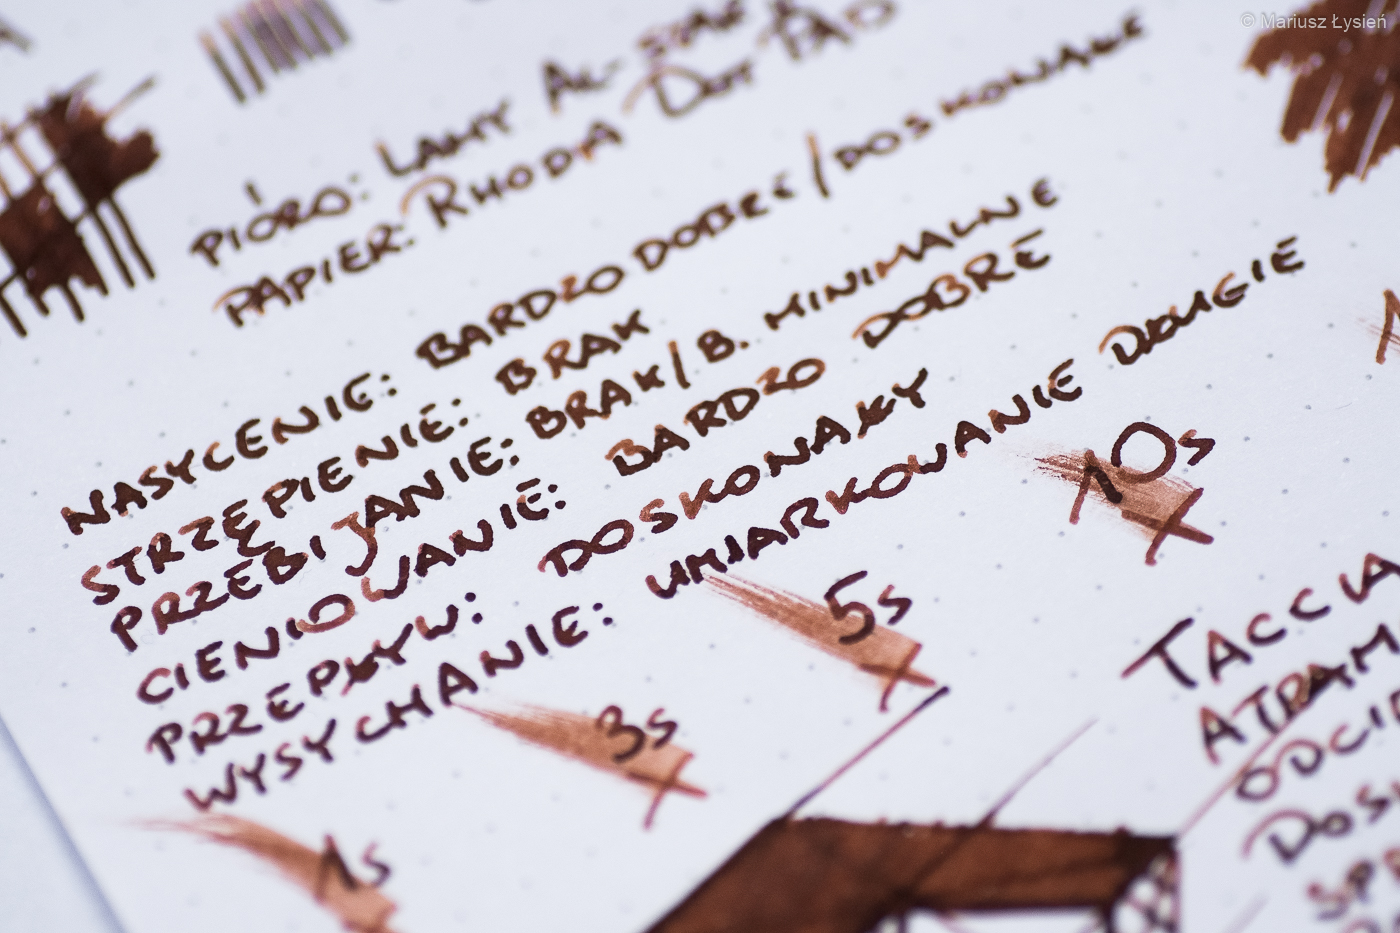 © Mariusz Łysień
PIÓRO: LAMY AL-STAR
PAPIER: RHODIA DOT PAD
NASYCENIE: BARDZO DOBRE/DOSKONAŁE
STRZĘPIENIE: BRAK
PRZEBIJANIE: BRAK/B. MINIMALNE
CIENIOWANIE: BARDZO DOBRE
PRZEPŁYW: DOSKONAŁY
WYSYCHANIE: UMIARKOWANIE DŁUGIE
1s
3s
5s
10s
TACCIA
ATRAM
ODCI